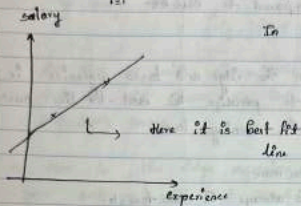 salary
In
Here it is best fit
line
experience